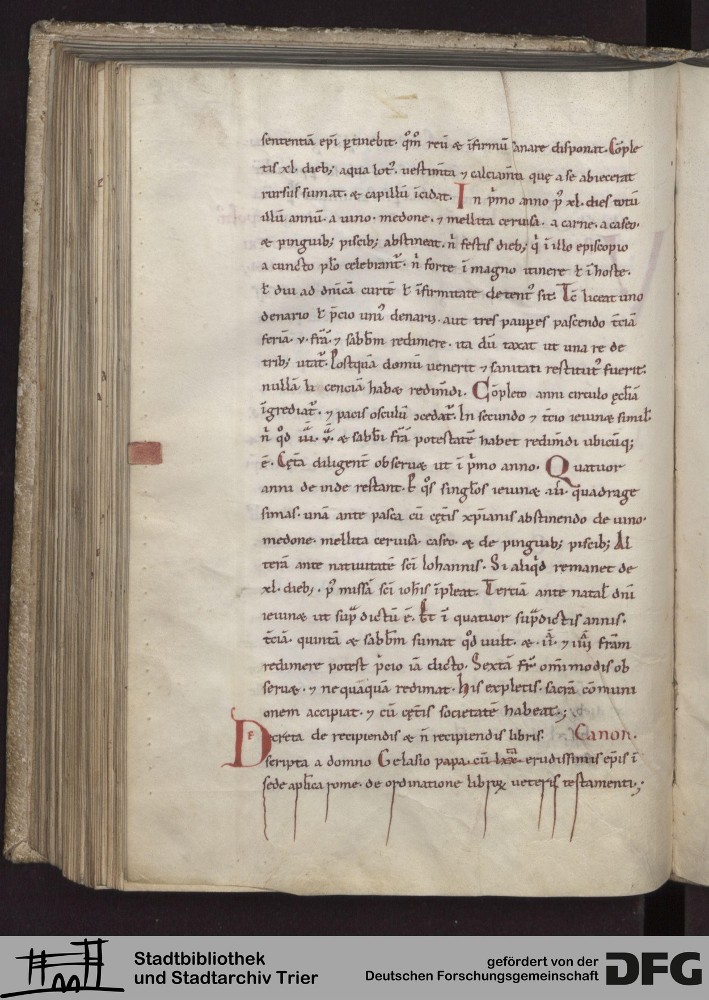 sententiā epi ꝑtinebit. qm̄ reū & ifirmū sanare disponat. Cōple
tis xl. dieb; aqua lot᷒. uestim̄ta ⁊ calciam̄ta quę a se abiecerat
rursus sumat. & capillū īcidat. In p̄mo anno p᷒ xl. dies totū
illū annū. a uino. medone. ⁊ mellita ceruisa. a carne. a caseo.
& pinguib; piscib; abstineat. n̄ festis dieb; q̄ ī illo episcopio
a cuncto plo celebrant᷒. n̄ forte ī magno itinere ł ī hoste.
ł diu ad dn̄icā curtē ł īfirmitate detent᷒ sit. Tc̄ liceat uno
denario ł p̄cio uni᷒ denarii. aut tres pauꝑes pascendo t̄ciā
feriā. v. fr̄ā. ⁊ sabb̄m redimere. ita dū taxat ut una re de
trib; utat᷒. Postquā domū uenerit ⁊ sanitati restitut᷒ fuerit.
nullā li cenciā habæ redim̄di. Cōpleto anni circulo ęcl̄iā
īgrediat᷒. ⁊ pacis osculū ɔcedat᷒. In secundo ⁊ t̄cio ieiunæ simil̄
n̄ qd̄ iii. v. & sabbi fr̄ā potestatē habet redim̄di ubicūq;
ē. Cęt̄a diligent̄ obseruæ ut ī p̄mo anno. Quatuor
anni de inde restant. ꝑ qo̅s singlo̅s ieiunæ iii. quadrage
simas. unā ante pasca cū cęt̄is xp̄ianis abstinendo de uino.
medone. mellita ceruisa. caseo. & de pinguib; piscib; Al
terā ante natiuitatē sc̄i Iohannis. Si aliqd̄ remanet de
xl. dieb;. p᷒ missā sc̄i ioh̄is īpleat. Terciā ante natal̄ dn̄i
ieiunæ ut sup̄ dictū ē. Et ī quatuor sup̄dictis annis.
t̄ciā. quintā & sabb̄m sumat qd̄ uult. & ii. ⁊ iiii fr̄am
redimere potest p̄cio iā dicto. Sextā fr̄ om̄imodis ob
seruæ. ⁊ nequaquā redimat. His expletis. sacrā cōmuni
onem accipiat. ⁊ cū cęt̄is societatē habeat.;
Decreta de recipiendis & n̄ recipiendis libris. Canon.
scripta a domno Gelasio papa. cū lxx. erudissimis ep̄is ī
sede aplica rome. de ordinatione libroꝝ ueteris testamenti.;
Stadtbibliothek
und Stadtarchiv Trier
gefördert von der
Deutschen Forschungsgemeinschaft
DFG